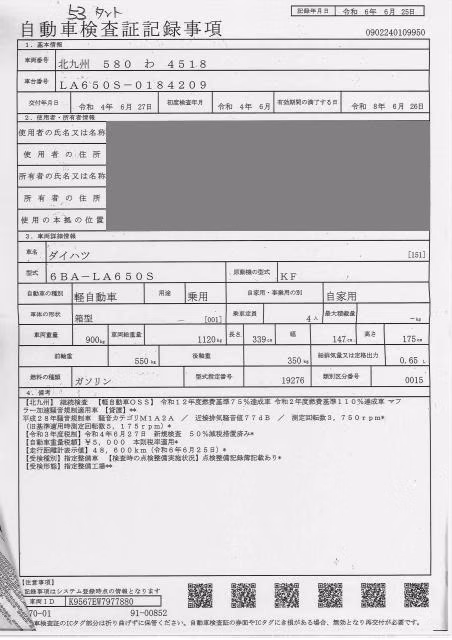 53 タント
記録年月日 令和 6年 6月 25日
自動車検査証記録事項
0902240109950
1．基本情報
車両番号 北九州 580 わ 4518
車台番号 LA650S-0184209
交付年月日 令和 4年 6月 27日 初度検査年月 令和 4年 6月 有効期間の満了する日 令和 8年 6月 26日
2．使用者・所有者情報
使用者の氏名又は名称
使用者の住所
所有者の氏名又は名称
所有者の住所
使用の本拠の位置
3．車両詳細情報
車名 ダイハツ [151]
型式 6BA-LA650S 原動機の型式 KF
自動車の種別 軽自動車 用途 乗用 自家用・事業用の別 自家用
車体の形状 箱型 [001] 乗車定員 4人 最大積載量 －kg
車両重量 900kg 車両総重量 1120kg 長さ 339cm 幅 147cm 高さ 175cm
前軸重 550kg 後軸重 350kg 総排気量又は定格出力 0.65 L
燃料の種類 ガソリン 型式指定番号 19276 類別区分番号 0015
4．備考
【北九州】 継続検査 【軽自動車OSS】 令和12年度燃費基準75％達成車 令和2年度燃費基準110％達成車 マフ
ラー加速騒音規制適用車 【貸渡】**
平成28年騒音規制車 騒音カテゴリM1A2A ／ 近接排気騒音値77dB ／ 測定回転数3，750rpm*
(旧基準適用時測定回転数5，175rpm)*
【令和3年度税制】令和4年6月27日 新規検査 50％減税措置済み*
【自動車重量税額】￥5，000 本則税率適用*
【走行距離計表示値】48，600km（令和6年6月25日）*
【受検種別】指定整備車 【検査時の点検整備実施状況】点検整備記録簿記載あり*
【受検形態】指定整備工場**
【注意事項】
記録事項はシステム登録時点の情報となります
車両ID K9567EW7977880
70-01 91-00852
車検査証のICタグ部分は折り曲げずに保管ください。自動車検査証の券面やICタグに き損がある場合、無効となり再交付が必要です。